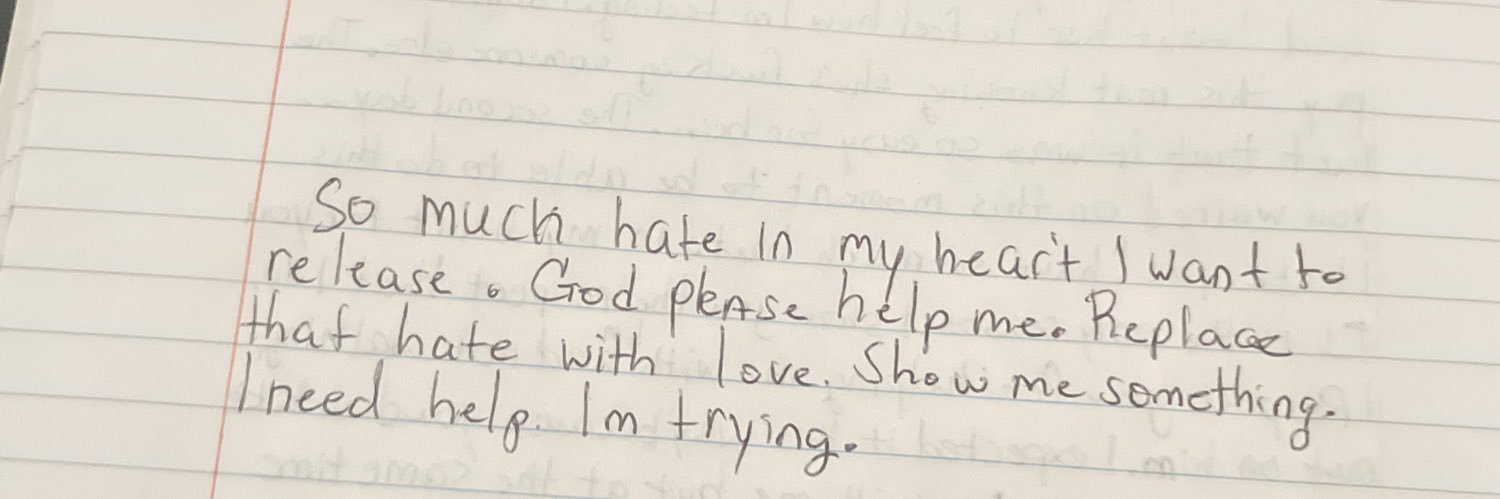 So much hate in my heart I want to
release. God please help me. Replace
that hate with love. Show me something.
I need help. Im trying.